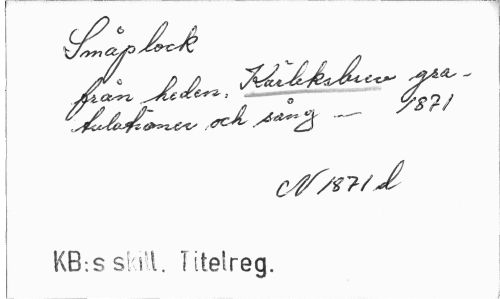 Småplock
från heden. Kärleksbrev gra-
tulationer och sång — 1871
N 1871 d
KB:s skill. Titelreg.